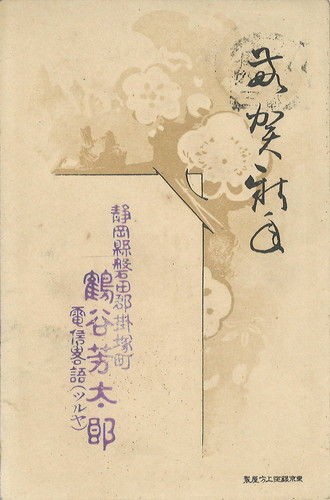 恭賀新年
靜岡縣磐田郡掛塚町
鶴谷芳太郎
電信畧語(ツルヤ)
東京銀座上方屋製